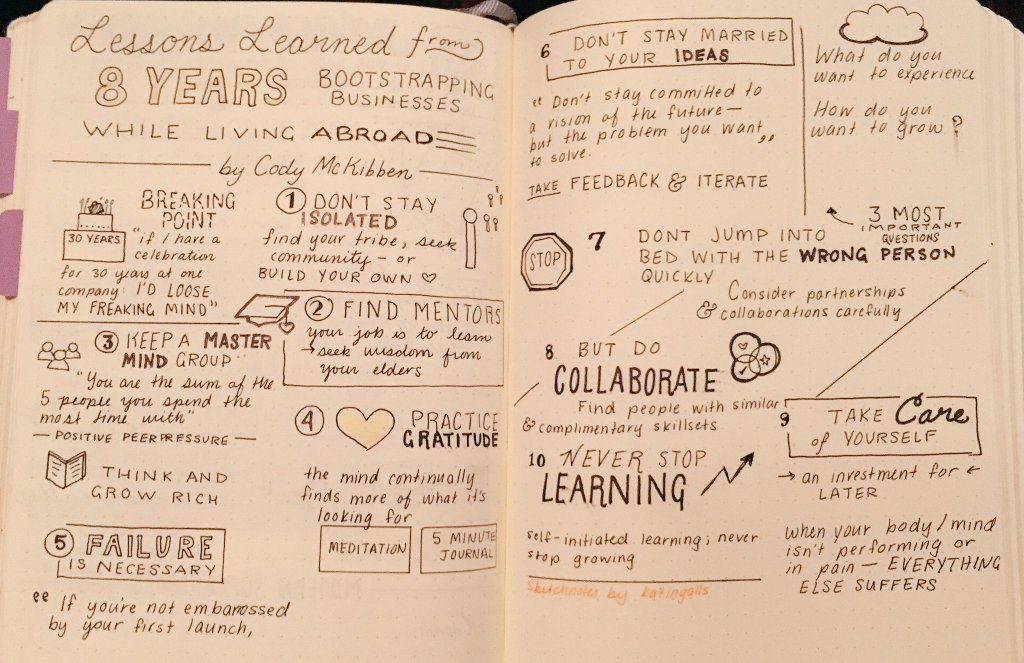 Lessons Learned from
8 YEARS BOOTSTRAPPING
BUSINESSES
WHILE LIVING ABROAD
by Cody McKibben
BREAKING
POINT
30 YEARS
"if I have a
celebration
for 30 years at one
company: I'D LOSE
MY FREAKING MIND"
1 DON'T STAY
ISOLATED
find your tribe, seek
community - or
BUILD YOUR OWN ♡
2 FIND MENTORS
your job is to learn
→ seek wisdom from
your elders
3 KEEP A MASTER
MIND GROUP
"You are the sum of the
5 people you spend the
most time with"
— POSITIVE PEER PRESSURE —
THINK AND
GROW RICH
4 PRACTICE
GRATITUDE
the mind continually
finds more of what it's
looking for
MEDITATION
5 MINUTE
JOURNAL
5 FAILURE
IS NECESSARY
"If you're not embarossed
by your first launch,
6 DON'T STAY MARRIED
TO YOUR IDEAS
"Don't stay committed to
a vision of the future —
but the problem you want
to solve."
TAKE FEEDBACK & ITERATE
What do you
want to experience
How do you
want to grow?
3 MOST
IMPORTANT
QUESTIONS
STOP
7 DONT JUMP INTO
BED WITH THE WRONG PERSON
QUICKLY
Consider partnerships
& collaborations carefully
8 BUT DO
COLLABORATE
Find people with similar
& complimentary skillsets
9 TAKE Care
of YOURSELF
→ an investment for ←
LATER
when your body/mind
isn't performing or
in pain — EVERYTHING
ELSE SUFFERS
10 NEVER STOP
LEARNING
self-initiated learning; never
stop growing
sketchnotes by katingalls